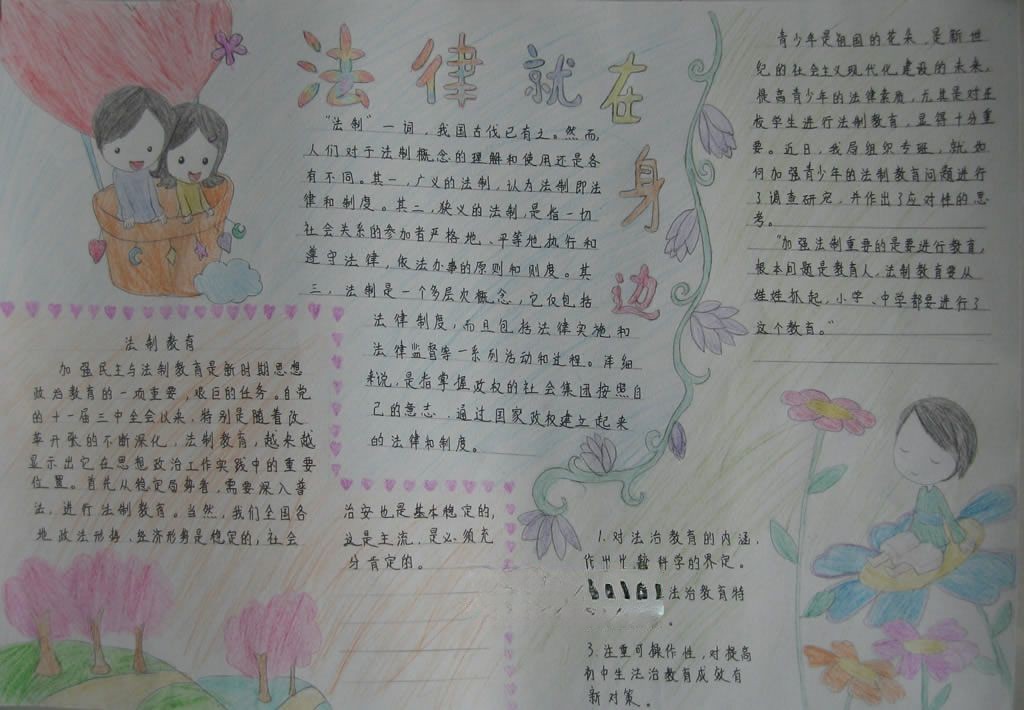 法律就在身边
“法制”一词，我国古代已有之。然而，
人们对于法制概念的理解和使用还是各
有不同。其一，广义的法制，认为法制即法
律和制度。其二，狭义的法制，是指一切
社会关系的参加者严格地、平等地执行和
遵守法律，依法办事的原则和则度。其
三，法制是一个多层次概念，它仅包括
法律制度，而且包括法律实施和
法律监督等一系列活动和过程。详细
来说，是指掌握政权的社会集团按照自
己的意志，通过国家政权建立起来
的法律和制度。
法制教育
加强民主与法制教育是新时期思想
政治教育的一项重要，艰巨的任务。自党
的十一届三中全会以来，特别是随着改
革开张的不断深化，法制教育，越来越
显示出它在思想政治工作实践中的重要
位置。首先从稳定局势看，需要深入普
法，进行法制教育。当然，我们全国各
地政法形势、经济形势是稳定的，社会
治安也是基本稳定的，
这是主流，是必须充
分肯定的。
青少年是祖国的花朵，是新世
纪的社会主义现代化建设的未来，
提高青少年的法律素质，尤其是对在
校学生进行法制教育，显得十分重
要。近日，我局组织专班，就如
何加强青少年的法制教育问题进行
了调查研究，并作出了应对性的思
考。
“加强法制重要的是要进行教育，
根本问题是教育人，法制教育要从
娃娃抓起，小学、中学都要进行了
这个教育。”
1.对法治教育的内涵，
作出科学的界定。
法治教育特
3.注重可操作性，对提高
初中生法治教育成效有
新对策。